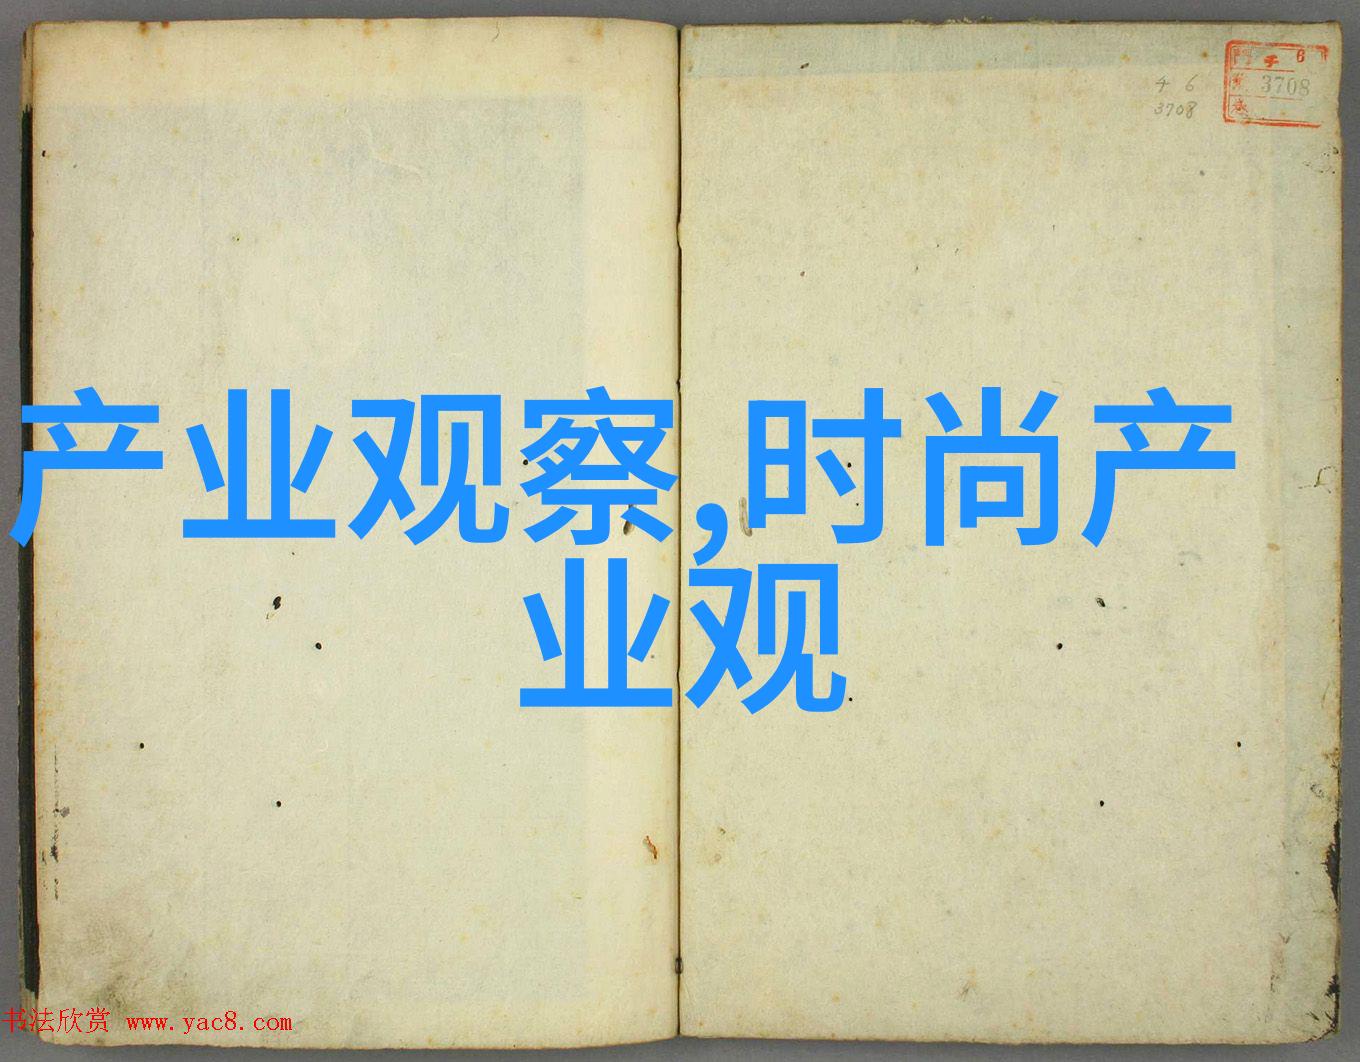 チ 6
3708
4 6
3708
产业观察,时尚产
业观
书法欣赏 www.yac8.com